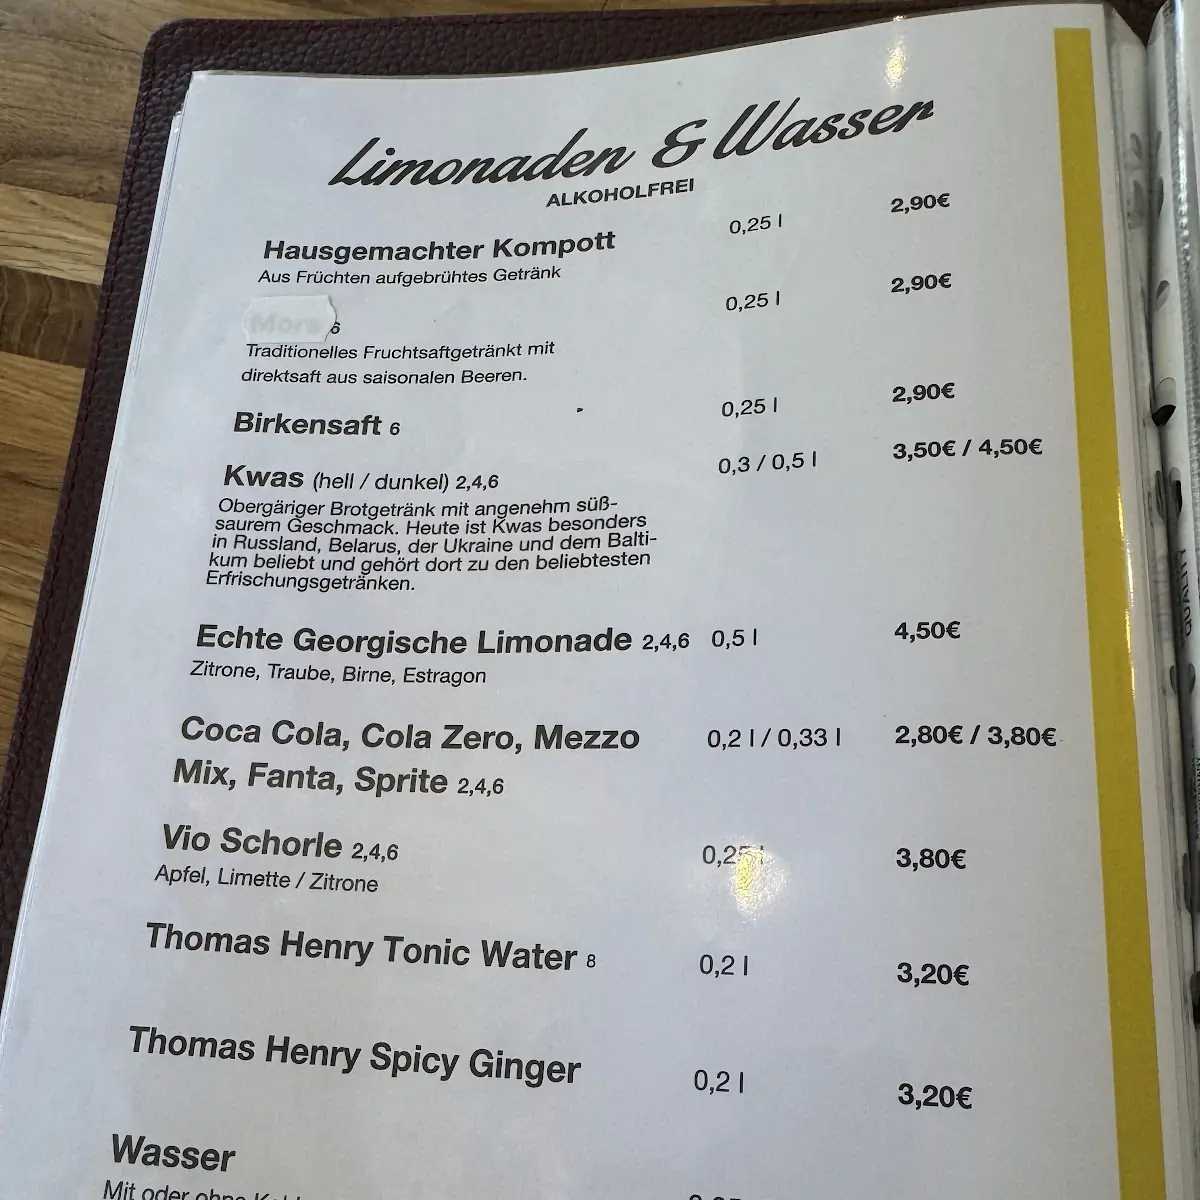 Limonaden & Wasser
ALKOHOLFREI
Hausgemachter Kompott 0,25 l 2,90€
Aus Früchten aufgebrühtes Getränk
Mors 6 0,25 l 2,90€
Traditionelles Fruchtsaftgetränkt mit
direktsaft aus saisonalen Beeren.
Birkensaft 6 0,25 l 2,90€
Kwas (hell / dunkel) 2,4,6 0,3 / 0,5 l 3,50€ / 4,50€
Obergäriger Brotgetränk mit angenehm süß-
saurem Geschmack. Heute ist Kwas besonders
in Russland, Belarus, der Ukraine und dem Balti-
kum beliebt und gehört dort zu den beliebtesten
Erfrischungsgetränken.
Echte Georgische Limonade 2,4,6 0,5 l 4,50€
Zitrone, Traube, Birne, Estragon
Coca Cola, Cola Zero, Mezzo 0,2 l / 0,33 l 2,80€ / 3,80€
Mix, Fanta, Sprite 2,4,6
Vio Schorle 2,4,6 0,25 l 3,80€
Apfel, Limette / Zitrone
Thomas Henry Tonic Water 8 0,2 l 3,20€
Thomas Henry Spicy Ginger 0,2 l 3,20€
Wasser
Mit oder ohne
QUALITY